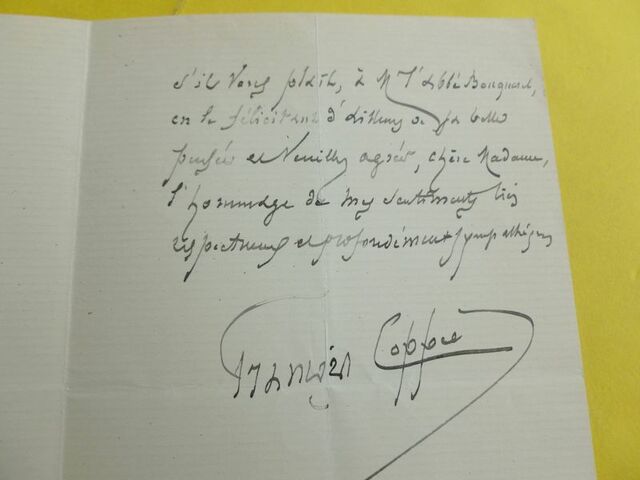 s'il vous plaît, à M l'abbé
en le félicitant d'ailleurs de sa belle
pensée et Veuillez agréer, chère Madame,
l'hommage de mes sentiments très
respectueux et profondément sympathiques
François Coppée